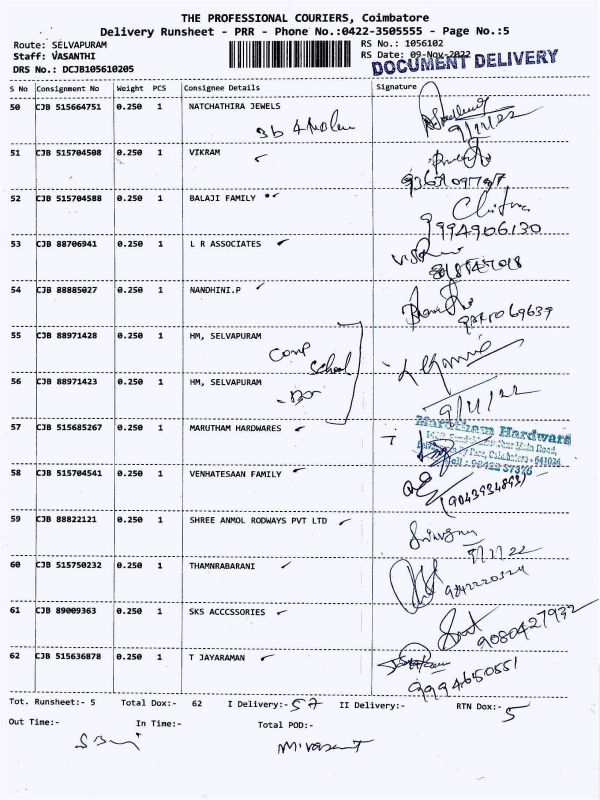 THE PROFESSIONAL COURIERS, Coimbatore
Delivery Runsheet - PRR - Phone No.:0422-3505555 - Page No.:5
Route: SELVAPURAM
RS No.: 1056102
Staff: VASANTHI
RS Date: 09-Nov-2022
DRS No.: DCJB105610205
DOCUMENT DELIVERY
S No Consignment No Weight PCS Consignee Details Signature
50 CJB 515664751 0.250 1 NATCHATHIRA JEWELS
9/11/22
51 CJB 515704508 0.250 1 VIKRAM
52 CJB 515704588 0.250 1 BALAJI FAMILY
Chitra
9994906130
53 CJB 88706941 0.250 1 L R ASSOCIATES
54 CJB 88885027 0.250 1 NANDHINI.P
55 CJB 88971428 0.250 1 HM, SELVAPURAM
Corp School
56 CJB 88971423 0.250 1 HM, SELVAPURAM
9/11/22
57 CJB 515685267 0.250 1 MARUTHAM HARDWARES
Marutham Hardwars
Coimbatore - 641026
58 CJB 515704541 0.250 1 VENHATESAAN FAMILY
59 CJB 88822121 0.250 1 SHREE ANMOL RODWAYS PVT LTD
60 CJB 515750232 0.250 1 THAMNRABARANI
61 CJB 89009363 0.250 1 SKS ACCCSSORIES
9080427932
62 CJB 515636878 0.250 1 T JAYARAMAN
9994650551
Tot. Runsheet:- 5 Total Dox:- 62 I Delivery:- 57 II Delivery:- RTN Dox:- 5
Out Time:- In Time:- Total POD:-